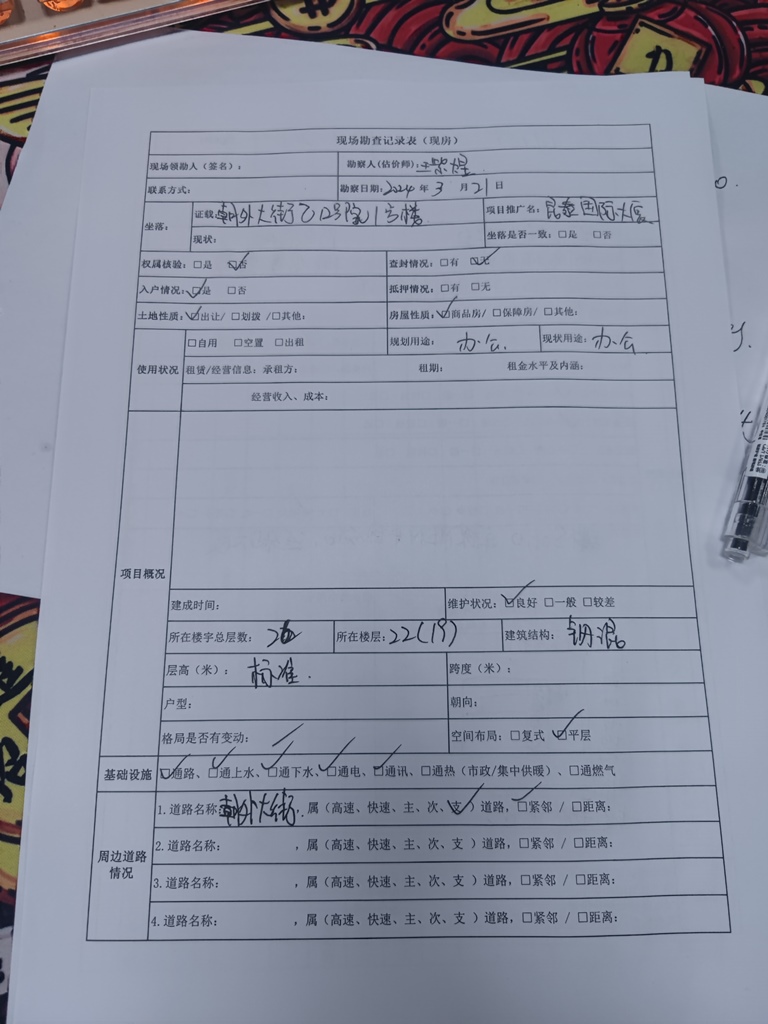 现场勘查记录表（现房）
现场领勘人（签名）： 勘察人(估价师)：
联系方式： 勘察日期：2024 年 3 月 21 日
坐落： 证载：朝外大街乙12号院1号楼 项目推广名：昆泰国际大厦
现状： 坐落是否一致：□是 □否
权属核验：□是 ☑否 查封情况：□有 ☑无
入户情况：☑是 □否 抵押情况：□有 □无
土地性质：☑出让/ □划拨 /□其他： 房屋性质：☑商品房/ □保障房/ □其他：
使用状况 □自用 □空置 □出租 规划用途： 办公 现状用途：办公
租赁/经营信息：承租方： 租期： 租金水平及内涵：
经营收入、成本：
项目概况
建成时间： 维护状况：☑良好 □一般 □较差
所在楼宇总层数： 所在楼层：22(19) 建筑结构： 钢混
层高（米）： 标准. 跨度（米）：
户型： 朝向：
格局是否有变动： 空间布局：□复式 ☑平层
基础设施 ☑通路、☑通上水、☑通下水、☑通电、☑通讯、□通热（市政/集中供暖）、□通燃气
周边道路情况 1.道路名称：朝外大街，属（高速、快速、主、次、支✓）道路，☑紧邻 / □距离：
2.道路名称： ，属（高速、快速、主、次、支 ）道路，□紧邻 / □距离：
3.道路名称： ，属（高速、快速、主、次、支 ）道路，□紧邻 / □距离：
4.道路名称： ，属（高速、快速、主、次、支 ）道路，□紧邻 / □距离：